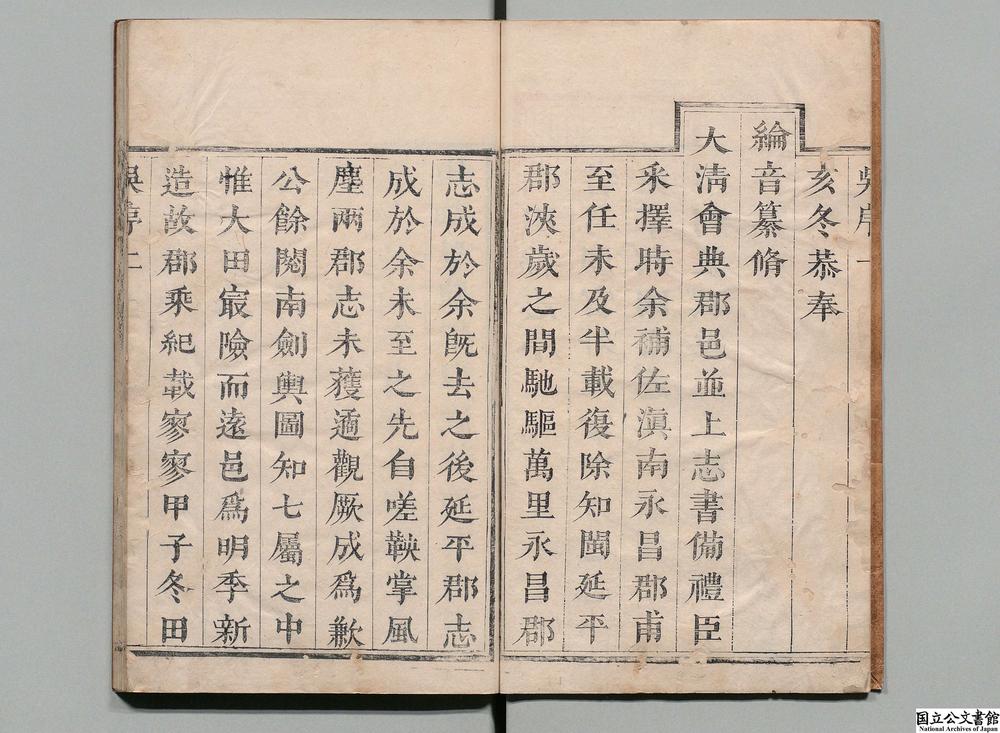 吳序一
亥冬恭奉
綸音纂脩
大清會典郡邑並上志書備禮臣
釆擇時余補佐滇南永昌郡甫
至任未及半載復除知閩延平
郡浹歲之間馳驅萬里永昌郡
志成於余旣去之後延平郡志
成於余未至之先自嗟鞅掌風
塵兩郡志未獲遹觀厥成爲歉
公餘閱南劍輿圖知七屬之中
惟大田㝡險而遠邑爲明季新
造故郡乘紀載寥寥甲子冬田
吳序二
国立公文書館
National Archives of Japan